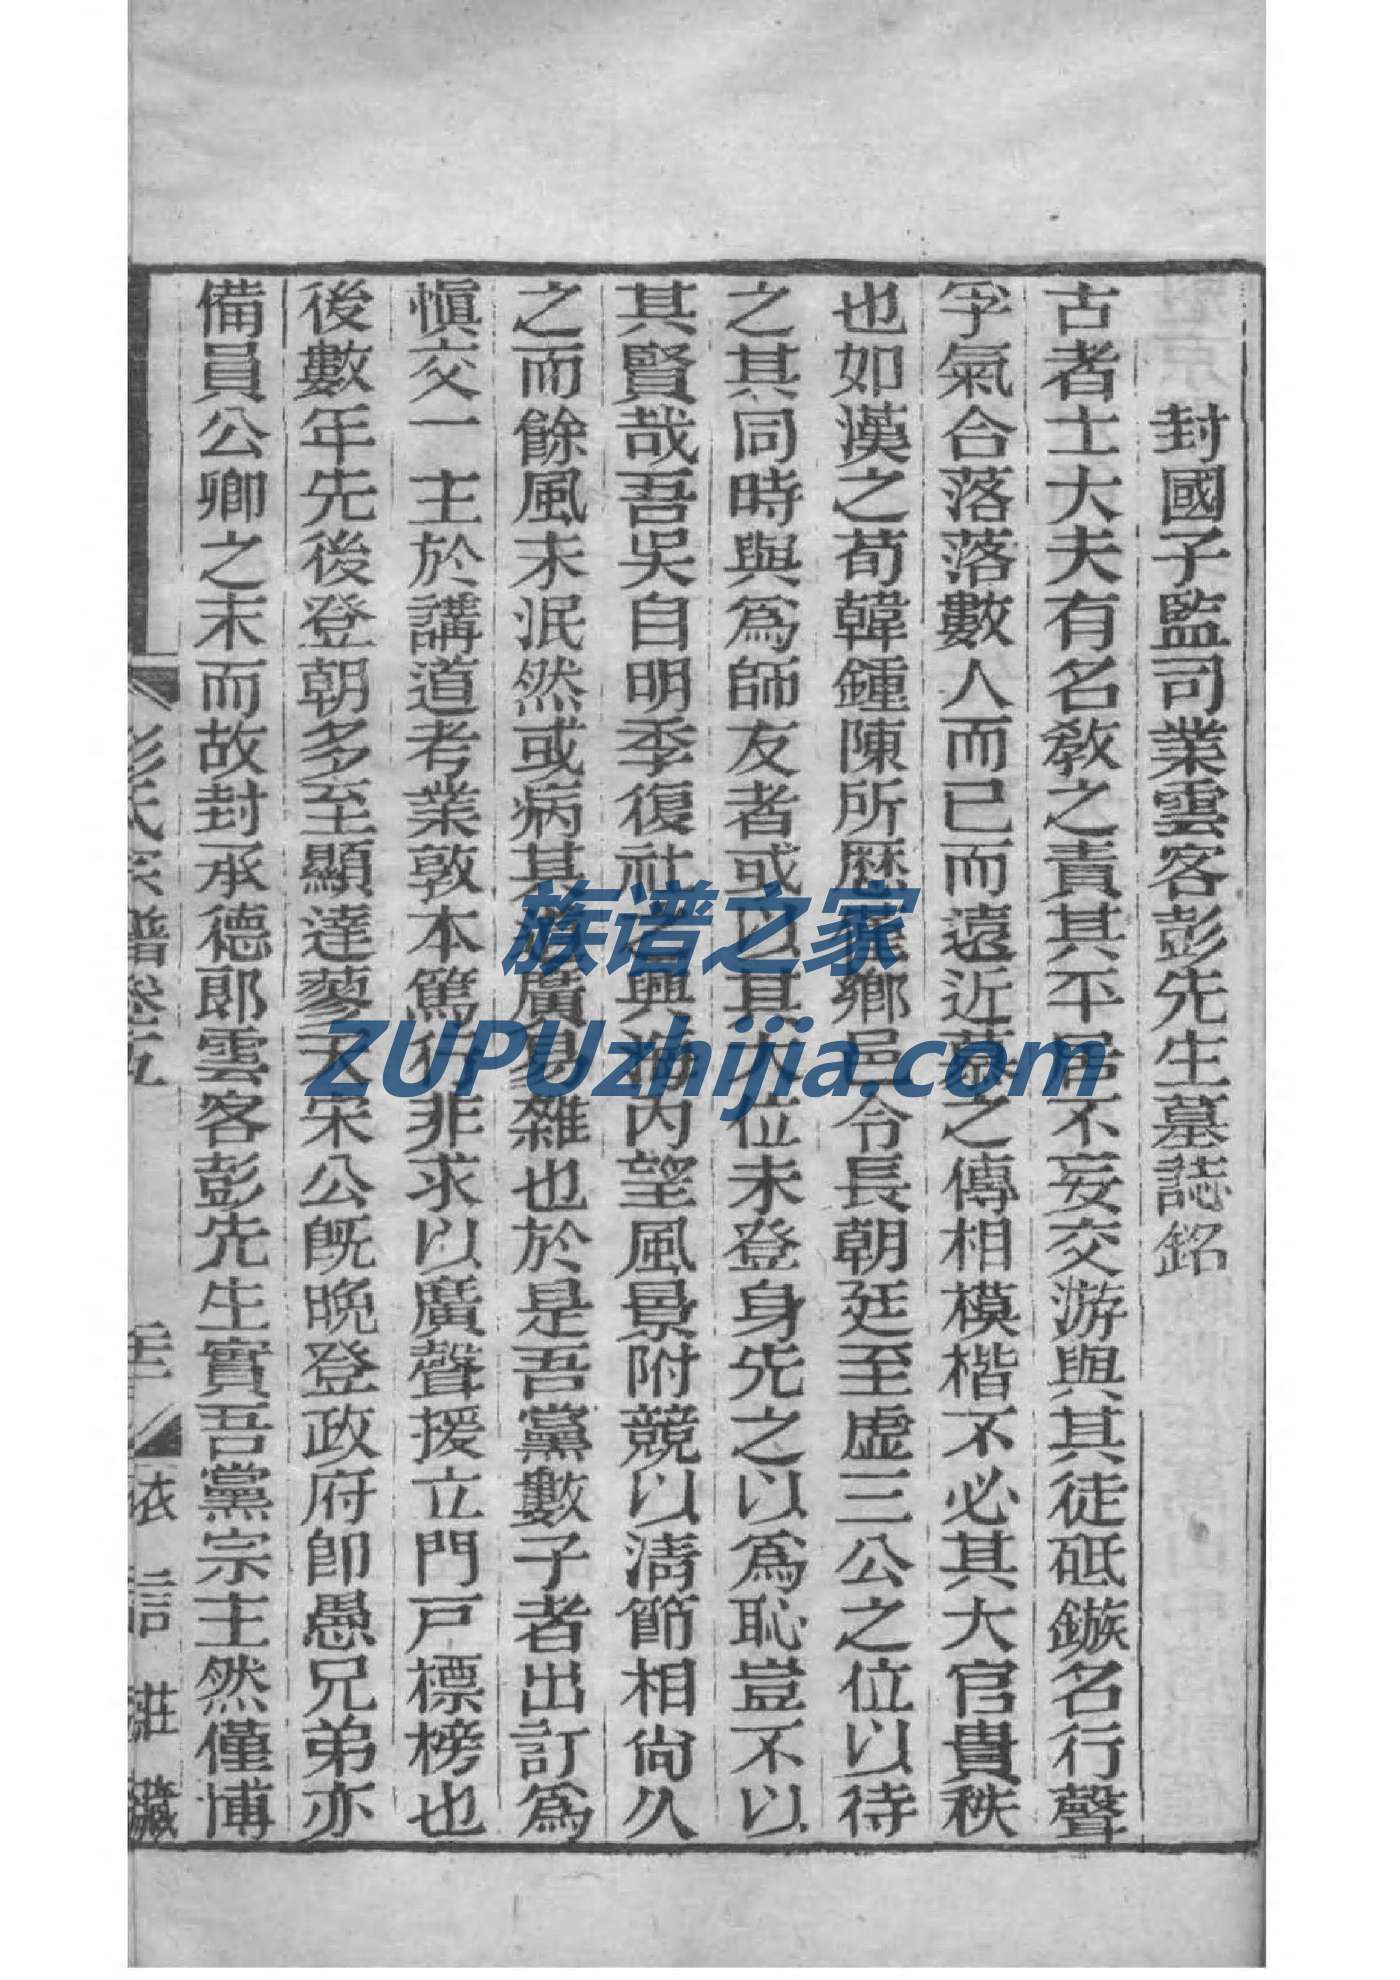 封國子監司業雲客彭先生墓誌銘
古者士大夫有名教之責其平居不妄交游與其徒砥鏃名行聲
孚氣合落落數人而已而遠近慕之傳相模楷不必其大官貴秩
也如漢之荀韓鍾陳所歷鄉邑令長朝廷至虛三公之位以待
之其同時與為師友者或以其大位未登身先之以為恥豈不以
其賢哉吾吳自明季復社之興海內望風景附競以清節相尙久
之而餘風未泯然或病其廣易雜也於是吾黨數子者出訂為
愼交一主於講道考業敦本篤行非求以廣聲援立門戶標榜也
後數年先後登朝多至顯達蓼天宋公旣晚登政府卽愚兄弟亦
備員公卿之末而故封承德郞雲客彭先生實吾黨宗主然僅博
彭氏宗譜卷五
衣言莊藏
族谱之家
ZUPUzhijia.com